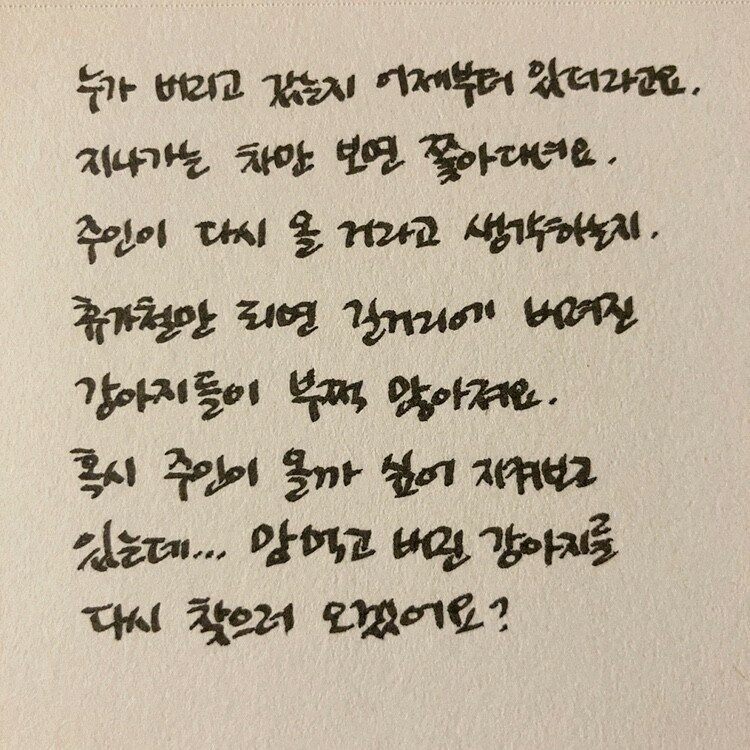 누가 버리고 갔는지 어제부터 있더라고요.
지나가는 차만 보면 쫓아대녀요.
주인이 다시 올 거라고 생각하는지.
휴가철만 되면 길거리에 버려진
강아지들이 부쩍 많아져요.
혹시 주인이 올까 싶어 지켜보고
있는데... 맘먹고 버린 강아지를
다시 찾으러 오겠어요?